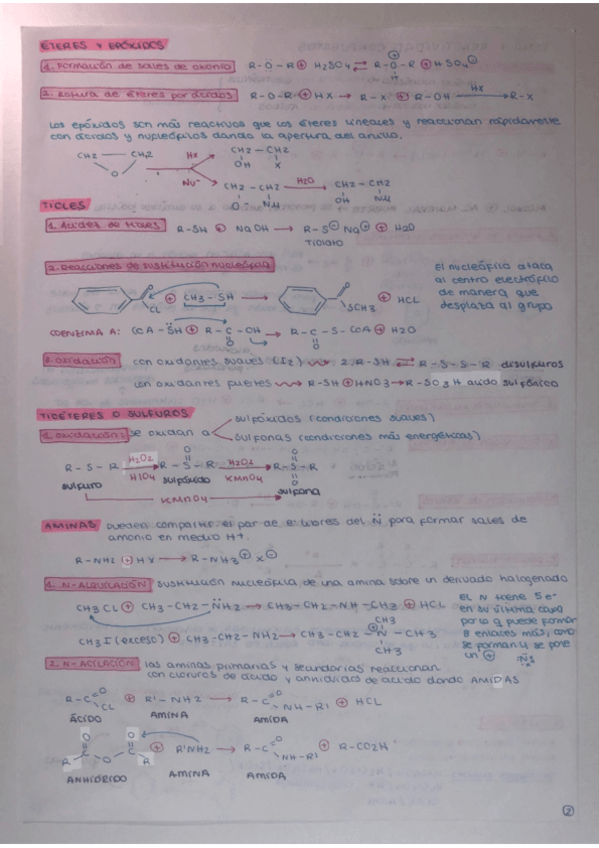 ÉTERES Y EPÓXIDOS
1. Formación de sales de oxonio R-O-R ⊕ H2SO4 ⇌ R-O-R ⊕ HSO4⊖
H
2. Rotura de éteres por ácidos R-O-R ⊕ HX → R-X ⊕ R-OH —HX→ R-X
Los epóxidos son más reactivos que los éteres lineales y reaccionan rápidamente
con ácidos y nucleófilos dando la apertura del anillo.
CH2 — CH2
O
HX
CH2 - CH2
OH X
Nu⁻
CH2 - CH2 —H2O→ CH2 - CH2
O⁻ Nu OH Nu
TIOLES
1. Acidez de tioles R-SH ⊕ NaOH → R-S⊖ Na⊕ ⊕ H2O
Tiolato
2. Reacciones de sustitución nucleófila
El nucleófilo ataca
al centro electrófilo
de manera que
desplaza al grupo
O Cl ⊕ CH3-SH → O SCH3 ⊕ HCl
COENZIMA A: CoA-SH ⊕ R-C-OH → R-C-S-CoA ⊕ H2O
O O
3. Oxidación con oxidantes suaves (I2) 2 R-SH ⇌ R-S-S-R disulfuros
con oxidantes fuertes R-SH ⊕ HNO3 → R-SO3H ácido sulfónico
TIOÉTERES O SULFUROS
1. oxidación: se oxidan a
sulfóxidos (condiciones suaves)
sulfonas (condiciones más energéticas)
R-S-R —H2O2 HIO4→ R-S-R —H2O2 KMnO4→ R-S-R
sulfuro sulfóxido sulfona
KMnO4
AMINAS pueden compartir el par de e⁻ libres del N̈ para formar sales de
amonio en medio H+.
R-NH2 ⊕ HX → R-NH3⊕ X⊖
1. N-ALQUILACIÓN sustitución nucleófila de una amina sobre un derivado halogenado
CH3Cl ⊕ CH3-CH2-N̈H2 → CH3-CH2-NH-CH3 ⊕ HCl
El N tiene 5e⁻
en su última capa
por lo q puede formar
3 enlaces más, como
se forman 4, se pone
un ⊕
CH3
CH3I (exceso) ⊕ CH3-CH2-NH2 → CH3-CH2-N⊕-CH3
CH3
2. N-ACILACIÓN las aminas primarias y secundarias reaccionan
con cloruros de ácido y anhídridos de ácido dando AMIDAS
R-C O Cl ⊕ R'-NH2 → R-C O NH-R' ⊕ HCl
ÁCIDO AMINA AMIDA
R C O O C O R ⊕ R'NH2 → R-C O NH-R' ⊕ R-CO2H
ANHÍDRIDO AMINA AMIDA
2